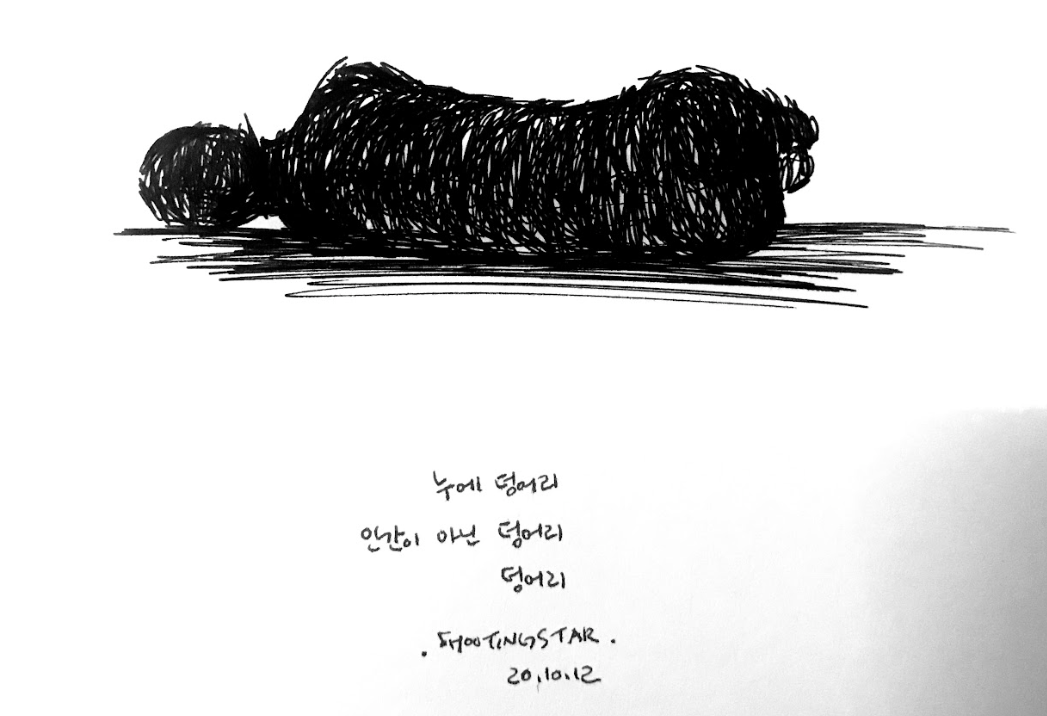 누에 덩어리
인간이 아닌 덩어리
덩어리
. SHOOTINGSTAR .
20.10.12